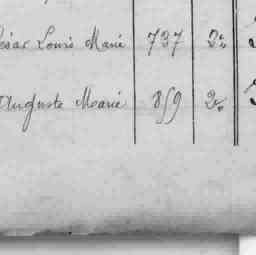 César Louis Marie 737 2e
Auguste Marie 859 2e